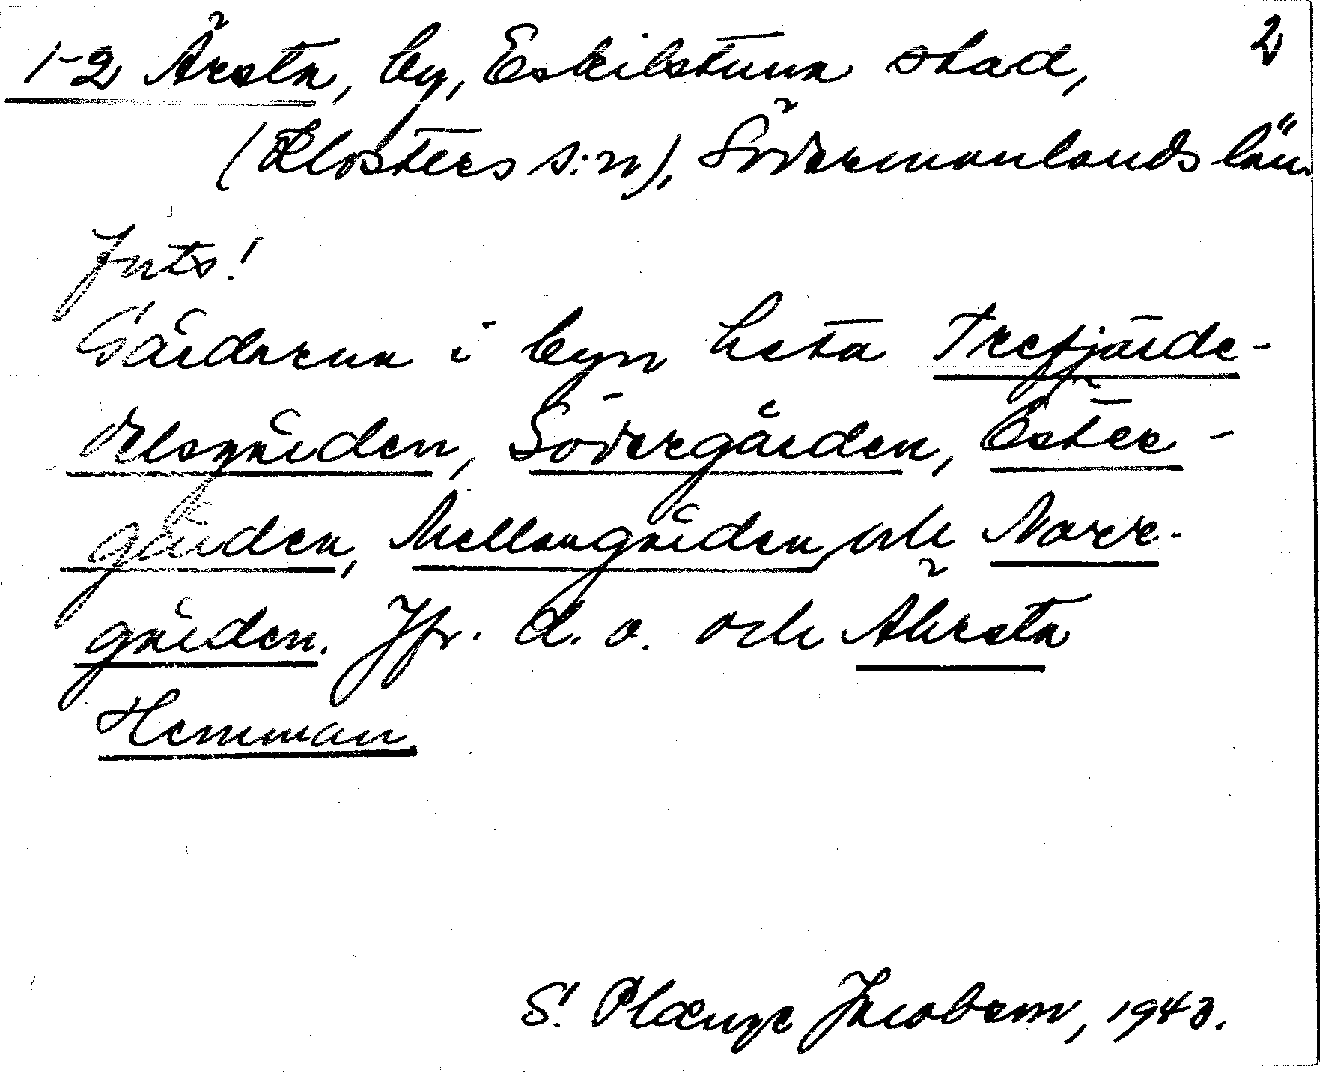 1-2 Ärsta, by, Eskilstuna stad, 2
(Klosters s:n), Södermanlands län.
Juts!
Gårdarna i byn heta Trefjärde-
delsgården, Södergården, Öster-
gården, Mellangården och Norr-
gården. Jfr. d. o. och Ährsta
Hemman
S. Plænge Jacobson, 1943.